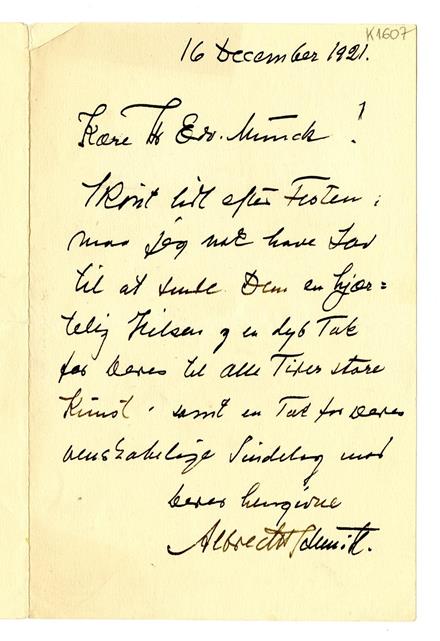 K1607
16 December 1921.
Kære Hr Edv. Munch!
Skönt lidt efter Festen,
maa jeg nok have Lov
til at sende Dem en hjær=
telig Hilsen og en dyb Tak
for Deres til alle Tider store
Kunst, samt en Tak for Deres
venskabelige Sindelag mod
Deres hengivne
Albrecht Schmidt.